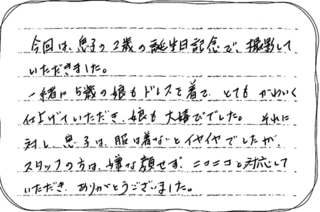 今回は、息子の2歳の誕生日記念で、撮影して
いただきました。
一緒に5歳の娘もドレスを着て、とても かわいく
仕上げていただき、娘も大喜びでした。 それに
対し、息子は、服は着ないとイヤイヤでしたが、
スタッフの方は、嫌な顔せず、ニコニコと対応して
いただき、ありがとうございました。